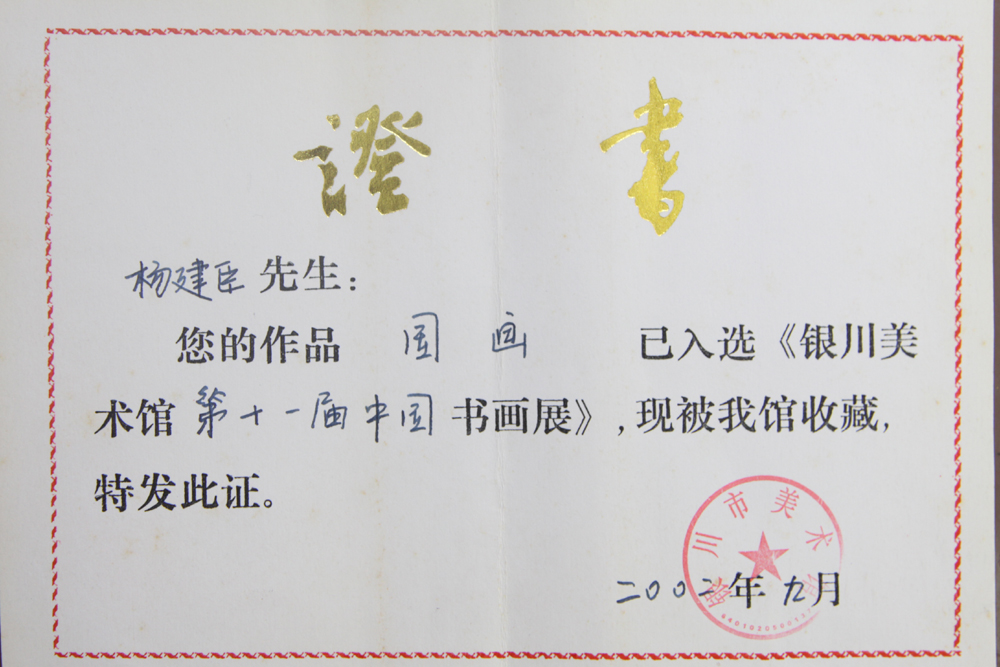 證書
杨建臣先生：
您的作品 国画 已入选《银川美
术馆第十一届中国书画展》,现被我馆收藏,
特发此证。
银川市美术馆
二00二年九月